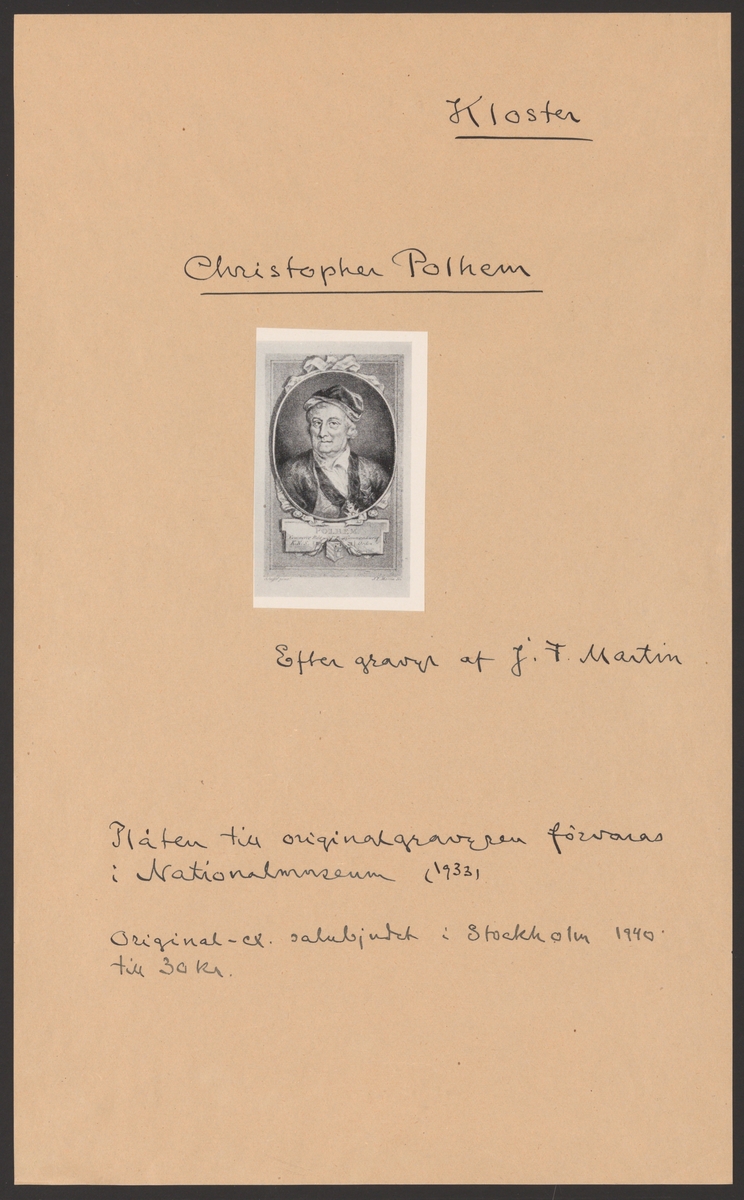 Kloster
Christopher Polhem
POLHEM
Efter gravyr af J. F. Martin
Plåten till originalgravyren förvaras
i Nationalmuseum (1933)
Original-ex. salubjudet i Stockholm 1940
till 30 kr.